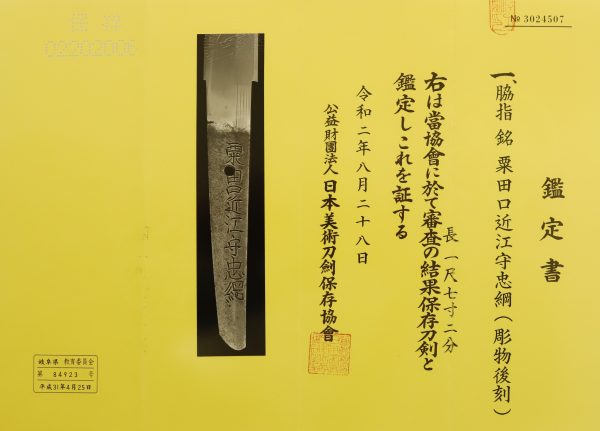 № 3024507
鑑定書
一、脇指 銘 粟田口近江守忠綱(彫物後刻)
長 一尺七寸二分
右は當協會に於て審査の結果保存刀剣と
鑑定しこれを証する
令和二年八月二十八日
公益財團法人 日本美術刀剣保存協會
粟田口近江守忠綱
岐阜県 教育委員会
第 84923 号
平成31年4月25日